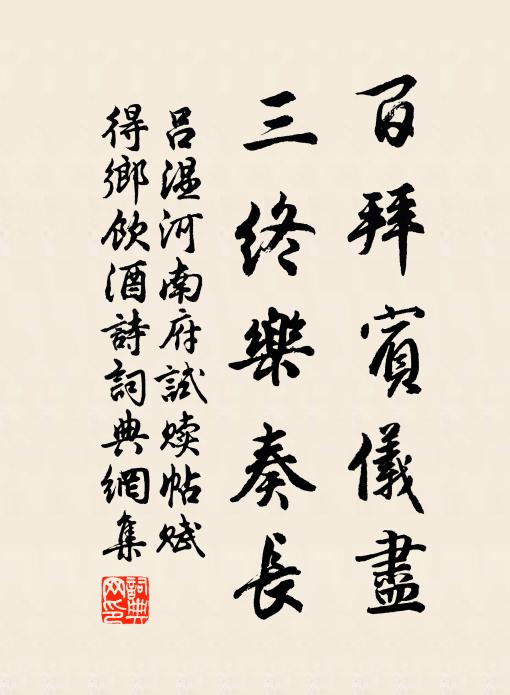 百拜賓儀盡
三終樂奏長
呂溫河南府試赎帖赋
得鄉飲酒詩詞典網集
詞典网印